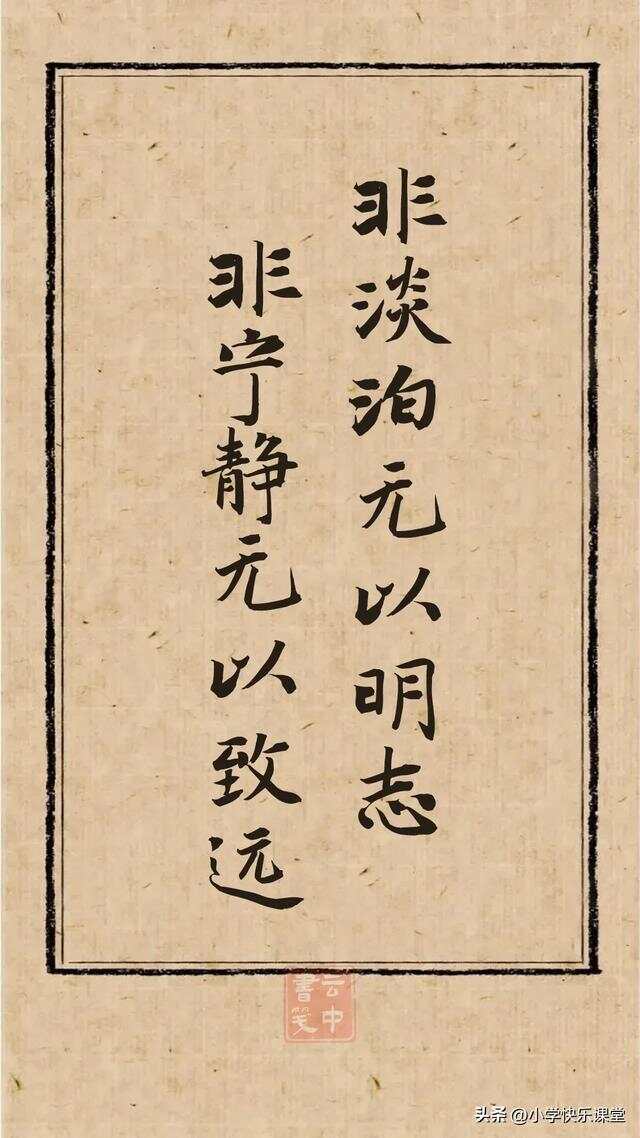 非淡泊无以明志
非宁静无以致远
云中
書笺
头条 @小学快乐课堂